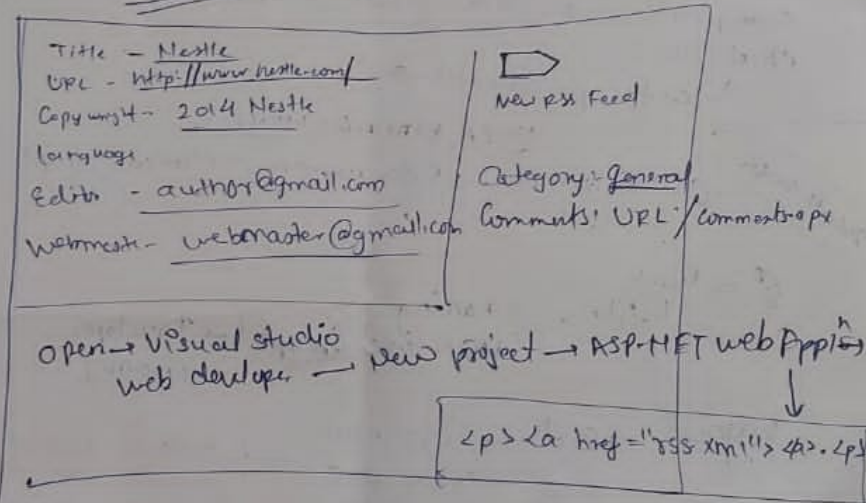 Title - Nestle
URL - http://www.nestle.com/
Copyright - 2014 Nestle
language
Editor - author@gmail.com
Webmaster - webmaster@gmail.com
New RSS Feed
Category:- general
Comments: URL:/comments.apx
Open → Visual studio
web developer → New project → ASP.NET web Appln
<p> <a href="rss xml"> <a>. <p>